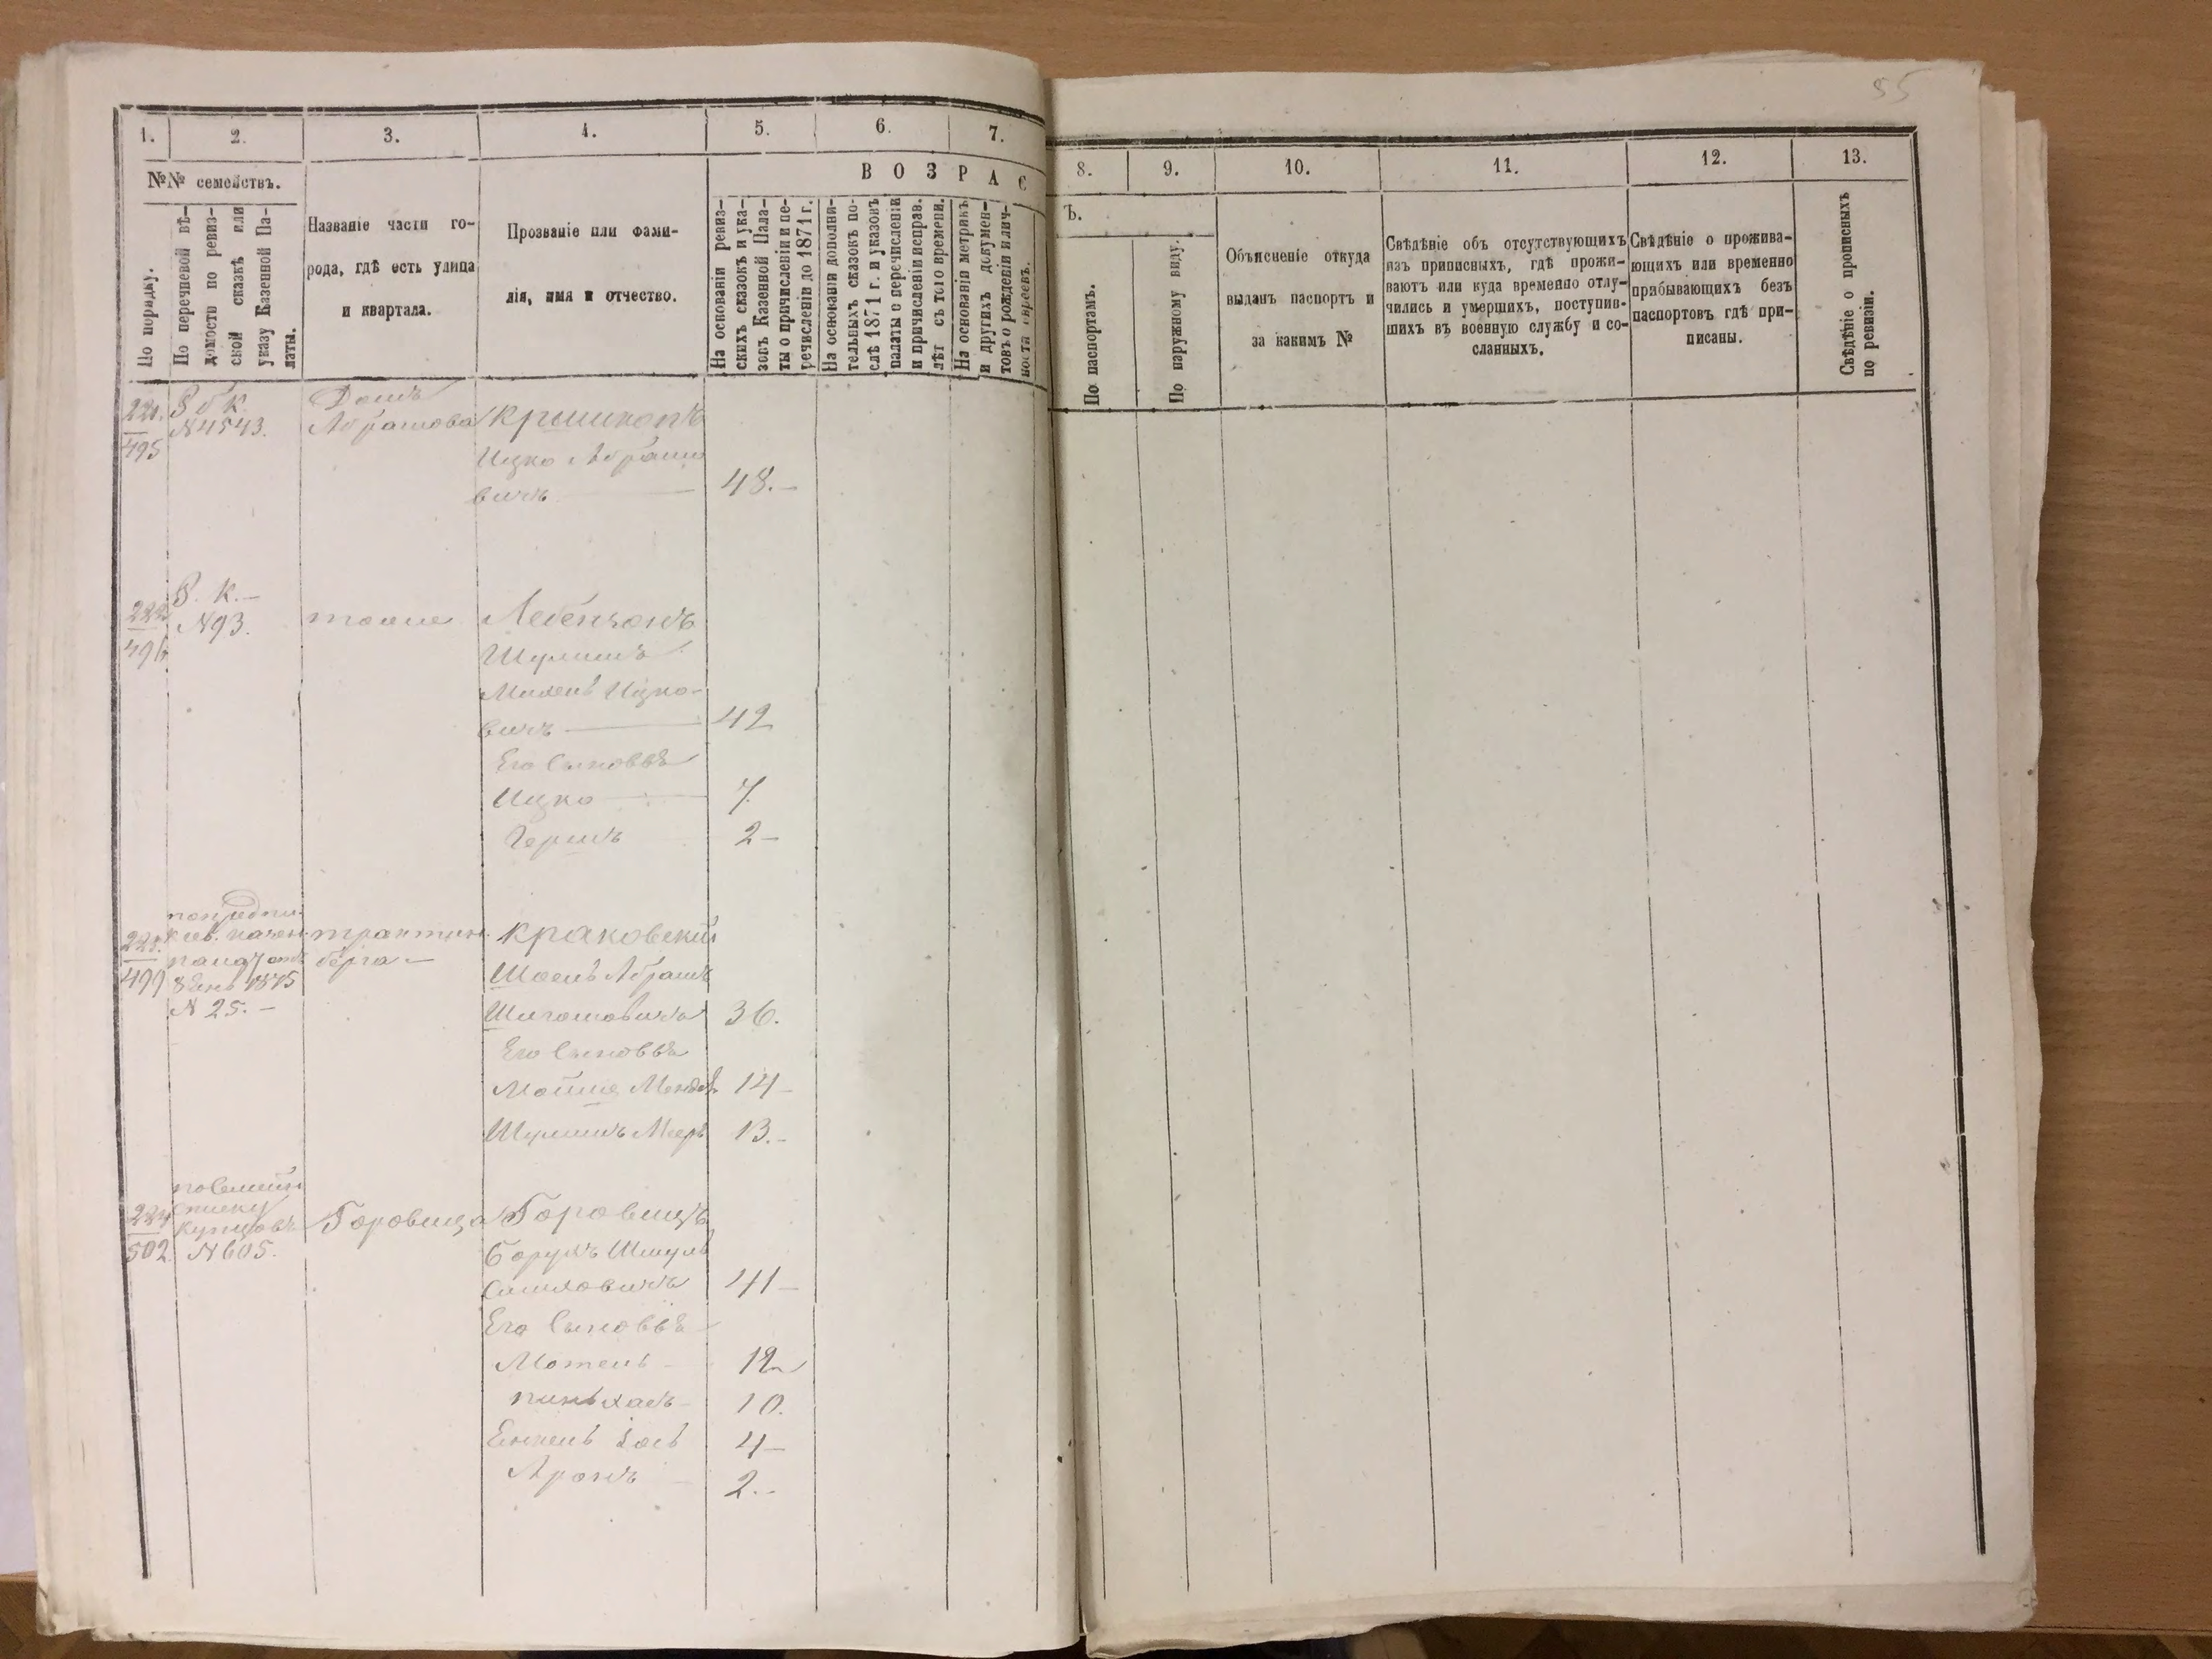 55
1.
2.
3.
4.
5.
6.
7.
8.
9.
10.
11.
12.
13.
№№ семействъ.
По порядку.
По перечневой вѣ-
домости по ревиз-
ской сказкѣ или
указу Казенной Па-
латы.
Названіе части го-
рода, гдѣ есть улица
и квартала.
Прозваніе или фами-
лія, имя и отчество.
ВОЗРАС
Ъ.
На основаніи ревиз-
скихъ сказокъ и ука-
зовъ Казенной Пала-
ты о причисленіи и пе-
речисленіи до 1871 г.
На основаніи дополни-
тельныхъ сказокъ по-
слѣ 1871 г. и указовъ
палаты о перечисленіи
и причисленіи исправ.
лѣт съ того времени.
На основаніи метрикъ
и другихъ докумен-
товъ о рожденіи и лич-
ности евреевъ.
По паспортамъ.
По наружному виду.
Объясненіе откуда
выданъ паспортъ и
за какимъ №
Свѣдѣніе объ отсутствующихъ
изъ приписныхъ, гдѣ прожи-
ваютъ или куда временно отлу-
чились и умершихъ, поступив-
шихъ въ военную службу и со-
сланныхъ.
Свѣдѣніе о прожива-
ющихъ или временно
прибывающихъ безъ
паспортовъ гдѣ при-
писаны.
Свѣдѣніе о прописныхъ
по ревизіи.
221.
495
N 4543.
Домъ
Абрамова
Крышкопъ
Ицко Абрамо
вичъ — 48.-
222
496
Р. К.-
N 93.
тоже
Лебензонъ
Шулимъ
Михель Ицко-
вичъ — 42
Его Сыновья
Ицко — 7.
Гершъ 2-
223.
499
N 25.-
Краковскій
Шоелъ Абрамъ
36.
Его Сыновья
Мойше Мендель 14-
Шулимъ Мееръ 13.-
224
502.
списку
купцовъ
N 605.
Горовица
Горовицъ
Борухъ Шмуль
41-
Его Сыновья
Мотель - 12
Пиньхасъ - 10.
Іось 4-
Аронъ - 2.-